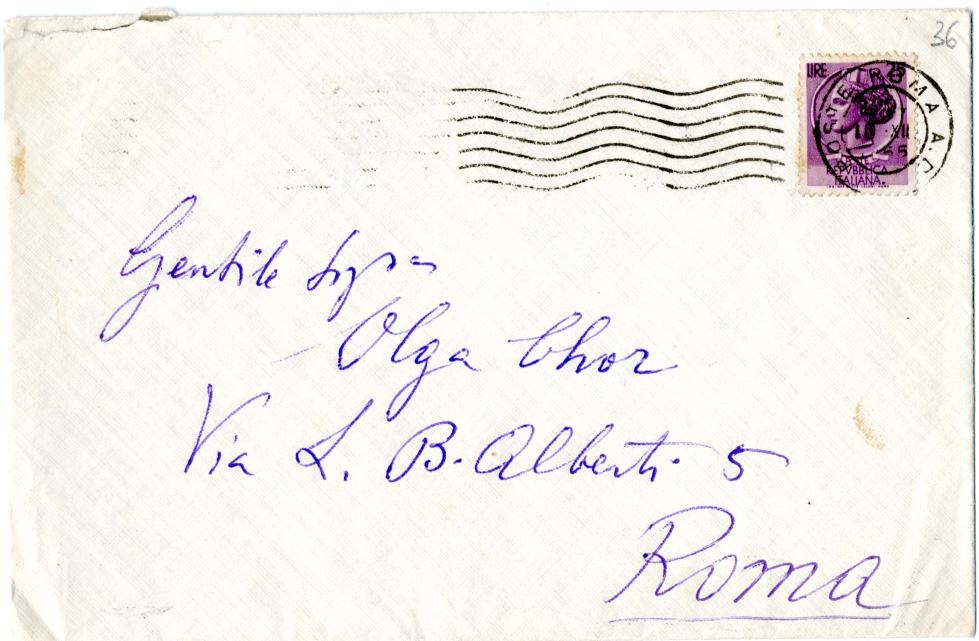 36
LIRE 25
POSTE ROMA A.D.
10 XII 55
POSTE
REPVBBLICA
ITALIANA
Gentile Sig.ra
Olga Chor
Via L. B. Alberti 5
Roma